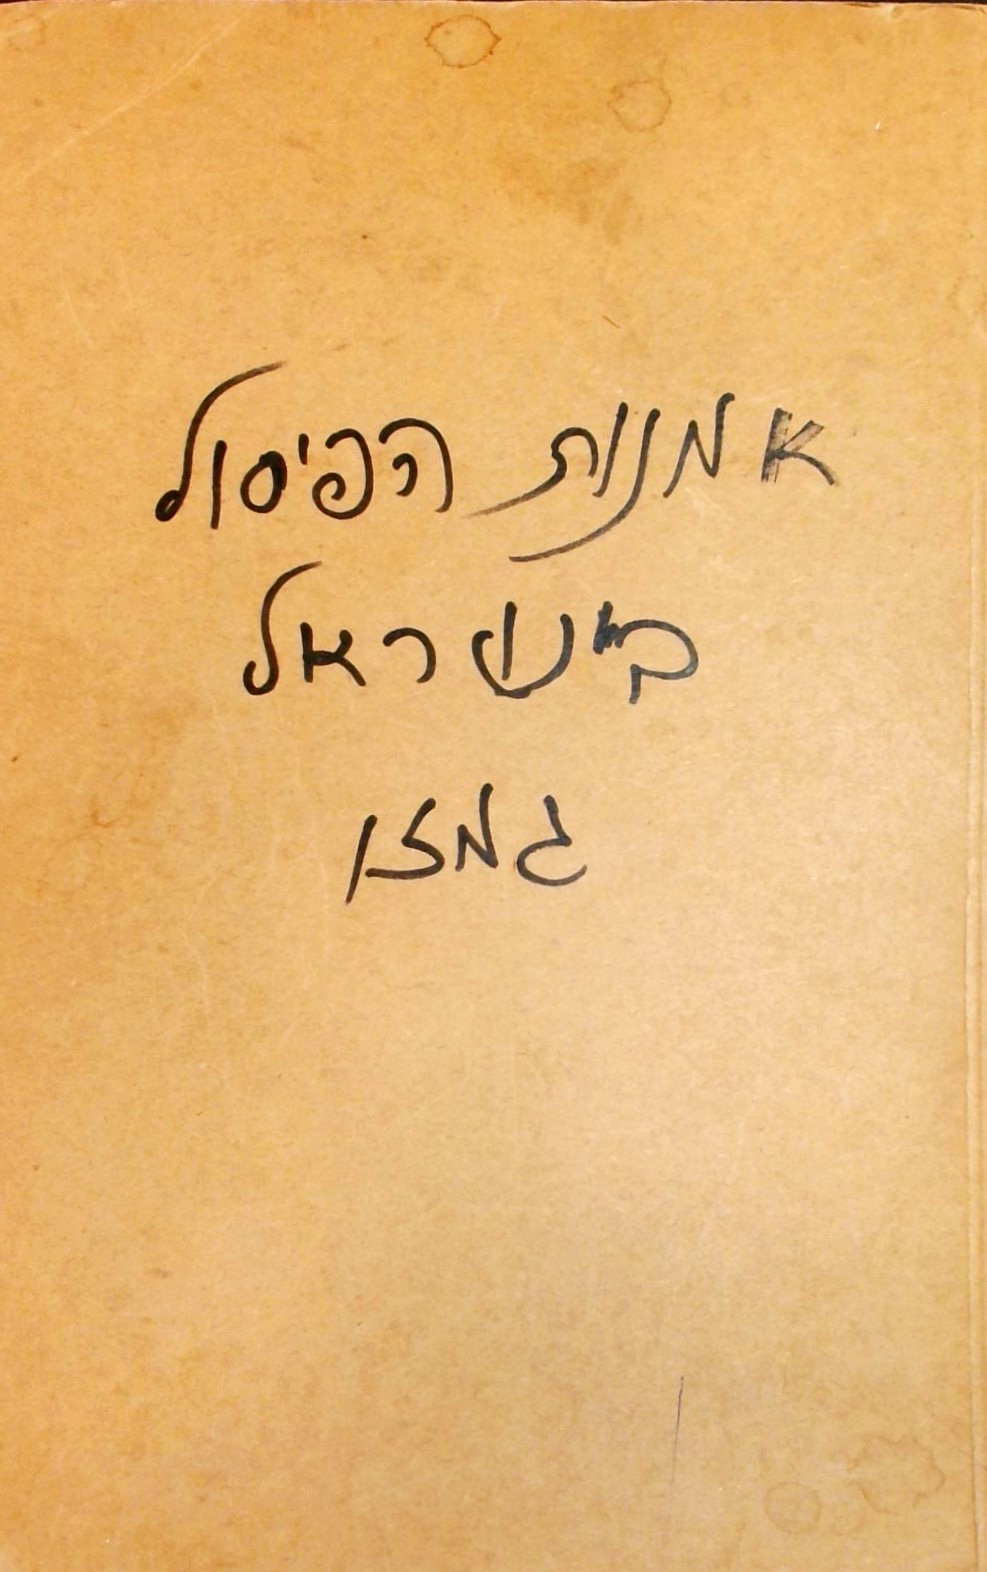 אמנות הפיסול
בישראל
גמזו